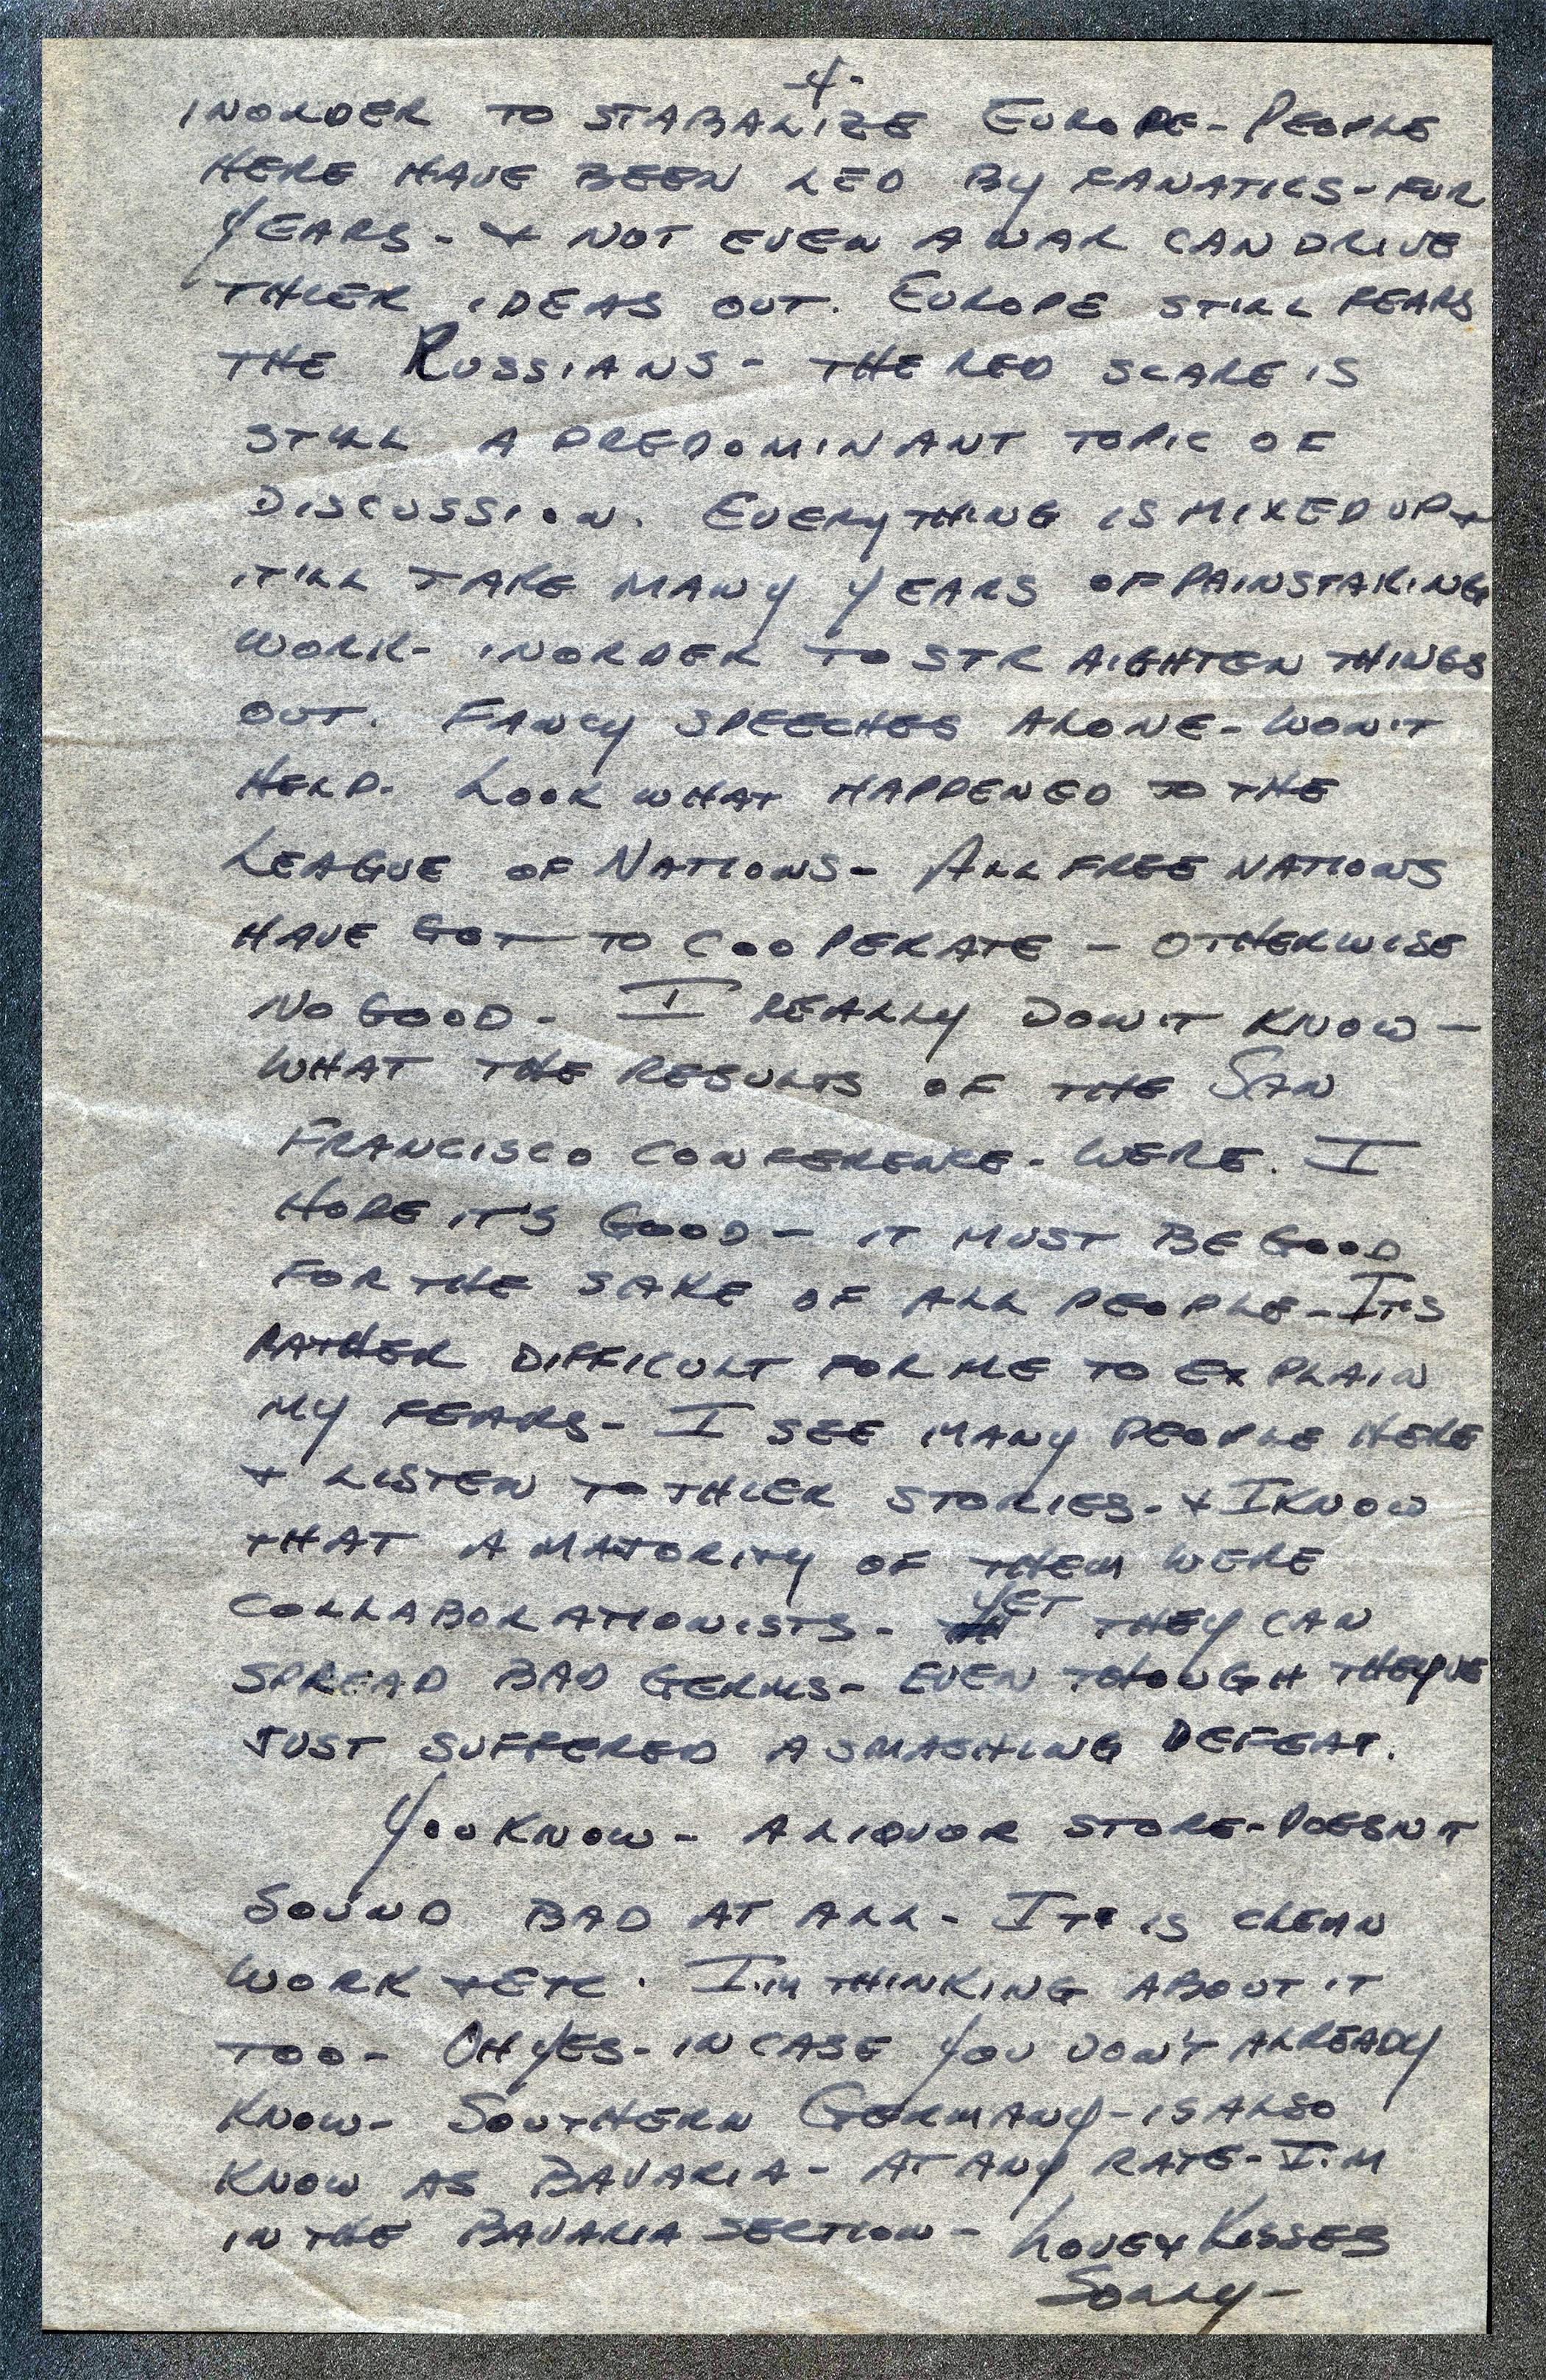 -4-
INORDER TO STABALIZE EUROPE - PEOPLE
HERE HAVE BEEN LED BY FANATICS - FOR
YEARS - & NOT EVEN A WAR CAN DRIVE
THIER IDEAS OUT. EUROPE STILL FEARS
THE RUSSIANS - THE RED SCARE IS
STILL A PREDOMINANT TOPIC OF
DISCUSSION. EVERYTHING IS MIXED UP &
IT'LL TAKE MANY YEARS OF PAINSTAKING
WORK - INORDER TO STRAIGHTEN THINGS
OUT. FANCY SPEECHES ALONE - WON'T
HELP. LOOK WHAT HAPPENED TO THE
LEAGUE OF NATIONS - ALL FREE NATIONS
HAVE GOT TO COOPERATE - OTHERWISE
NO GOOD - I REALLY DON'T KNOW -
WHAT THE RESULTS OF THE SAN
FRANCISCO CONFERENCE - WERE. I
HOPE IT'S GOOD - IT MUST BE GOOD
FOR THE SAKE OF ALL PEOPLE - IT'S
RATHER DIFFICULT FOR ME TO EXPLAIN
MY FEARS - I SEE MANY PEOPLE HERE
& LISTEN TO THIER STORIES - & I KNOW
THAT A MAJORITY OF THEM WERE
COLLABORATIONISTS - YET THEY CAN
SPREAD BAD GERMS - EVEN THOUGH THEY'VE
JUST SUFFERED A SMASHING DEFEAT.
YOU KNOW - A LIQUOR STORE - DOESN'T
SOUND BAD AT ALL - IT IS CLEAN
WORK & ETC. I'M THINKING ABOUT IT
TOO - OH YES - IN CASE YOU DON'T ALREADY
KNOW - SOUTHERN GERMANY - IS ALSO
KNOW AS BAVARIA - AT ANY RATE - I'M
IN THE BAVARIA SECTION - LOVE & KISSES
SOLLY -